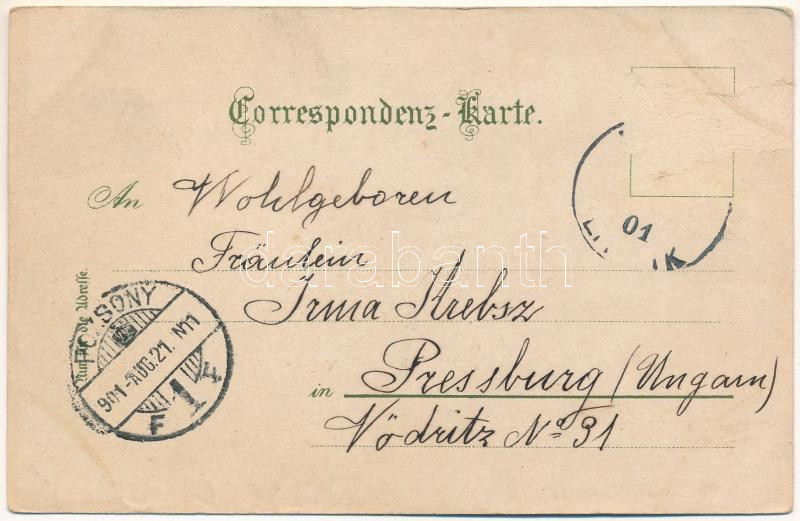 Correspondenz-Karte.
An Wohlgeboren
Fräulein
Irma Krebsz
in Pressburg (Ungarn)
Vödritz No 31
Nur für die Adresse.
POZSONY
901-AUG.21. N11
1
F F
01
darabanth